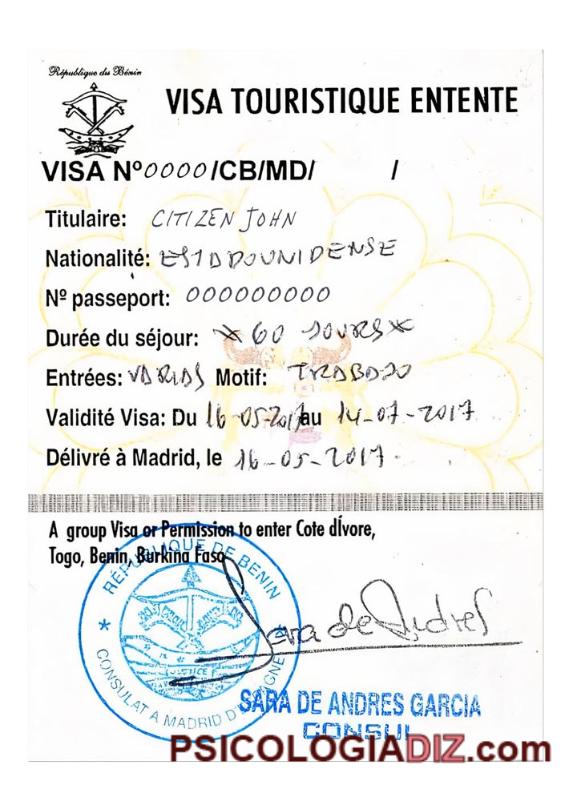 République du Bénin
VISA TOURISTIQUE ENTENTE
VISA Nº 0000/CB/MD/ /
Titulaire: CITIZEN JOHN
Nationalité: ESTADOUNIDENSE
Nº passeport: 000000000
Durée du séjour: *60 JOURS*
Entrées: VARIAS Motif: TRABAJO
Validité Visa: Du 16-05-2017 au 14-07-2017
Délivré à Madrid, le 16-05-2017-
A group Visa or Permission to enter Cote dÍvore,
Togo, Benin, Burkina Faso
RÉPUBLIQUE DE BENIN
JUSTICE
CONSULAT A MADRID
Sara de Andres
SARA DE ANDRES GARCIA
CONSUL
PSICOLOGIADIZ.com